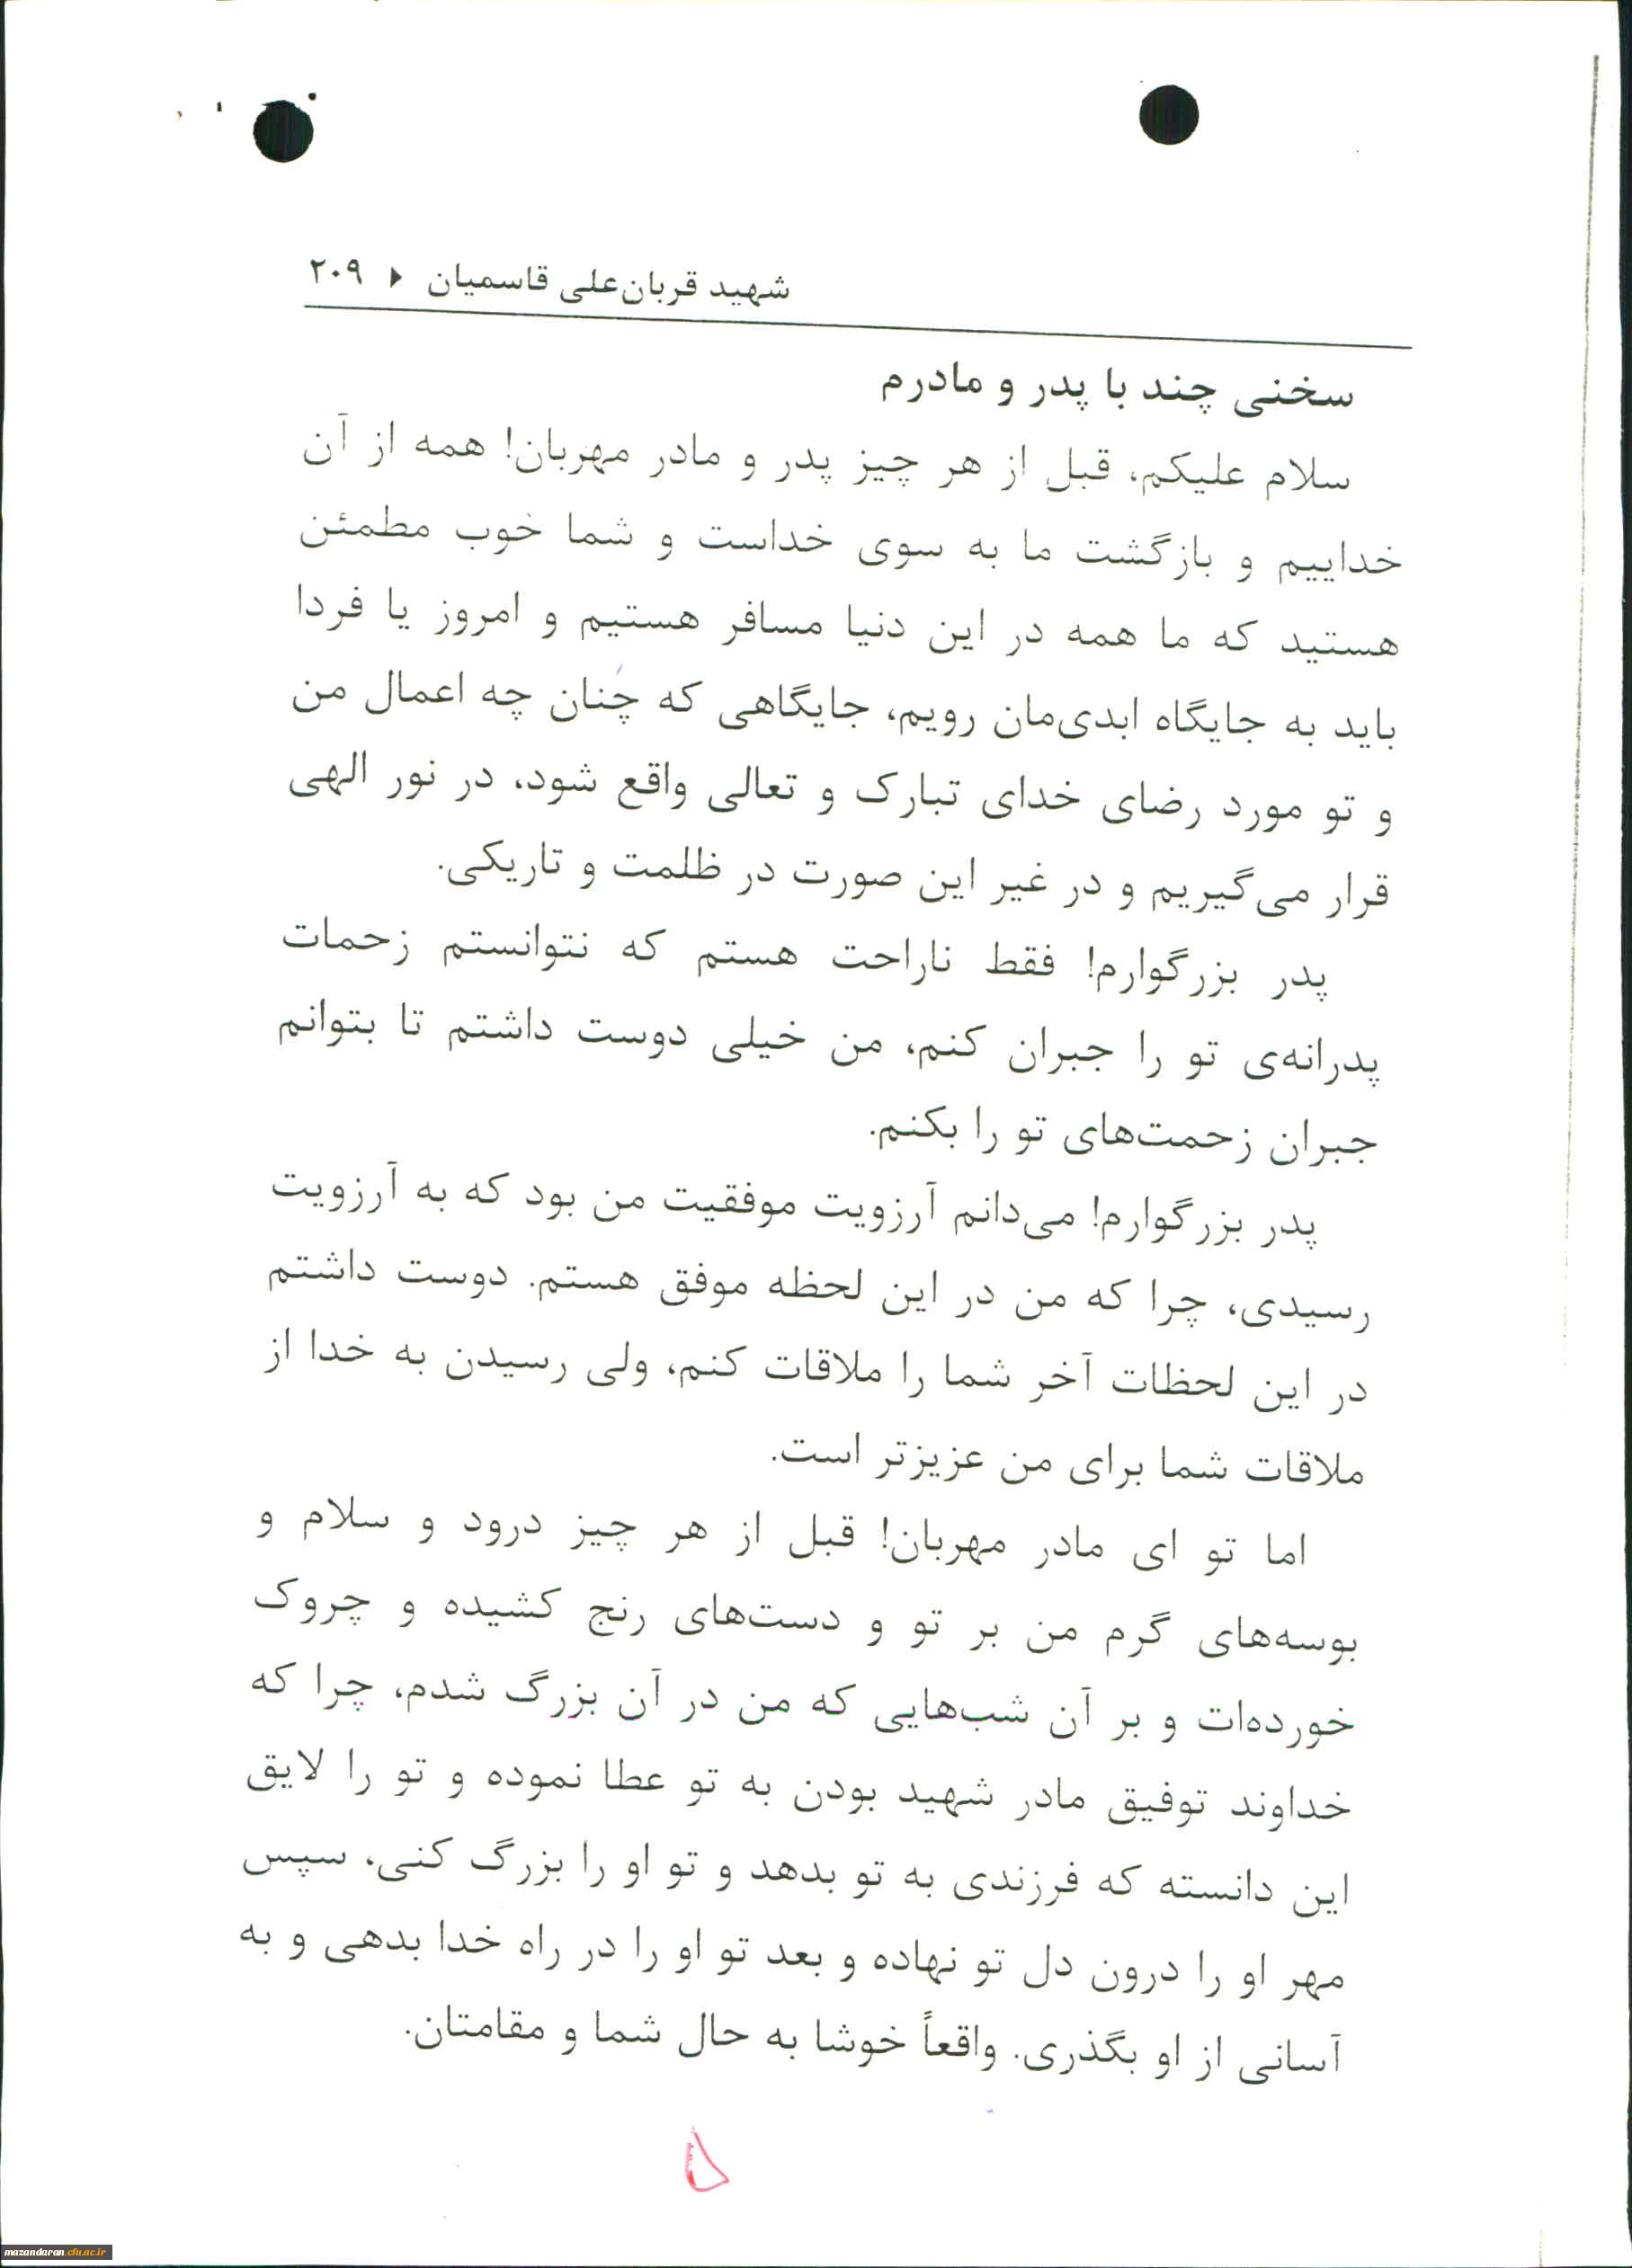 شهید قربان‌علی قاسمیان ▸ ۲۰۹
سخنی چند با پدر و مادرم
سلام علیکم، قبل از هر چیز پدر و مادر مهربان! همه از آن
خداییم و بازگشت ما به سوی خداست و شما خوب مطمئن
هستید که ما همه در این دنیا مسافر هستیم و امروز یا فردا
باید به جایگاه ابدی‌مان رویم، جایگاهی که چنان چه اعمال من
و تو مورد رضای خدای تبارک و تعالی واقع شود، در نور الهی
قرار می‌گیریم و در غیر این صورت در ظلمت و تاریکی.
پدر بزرگوارم! فقط ناراحت هستم که نتوانستم زحمات
پدرانه‌ی تو را جبران کنم، من خیلی دوست داشتم تا بتوانم
جبران زحمت‌های تو را بکنم.
پدر بزرگوارم! می‌دانم آرزویت موفقیت من بود که به آرزویت
رسیدی، چرا که من در این لحظه موفق هستم. دوست داشتم
در این لحظات آخر شما را ملاقات کنم، ولی رسیدن به خدا از
ملاقات شما برای من عزیزتر است.
اما تو ای مادر مهربان! قبل از هر چیز درود و سلام و
بوسه‌های گرم من بر تو و دست‌های رنج کشیده و چروک
خورده‌ات و بر آن شب‌هایی که من در آن بزرگ شدم، چرا که
خداوند توفیق مادر شهید بودن به تو عطا نموده و تو را لایق
این دانسته که فرزندی به تو بدهد و تو او را بزرگ کنی، سپس
مهر او را درون دل تو نهاده و بعد تو او را در راه خدا بدهی و به
آسانی از او بگذری. واقعاً خوشا به حال شما و مقامتان.
۵
mazandaran.cfu.ac.ir